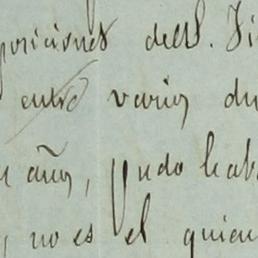 posiciones del S. Fi
entre varios du
n años, pudo hab
, no es el quien